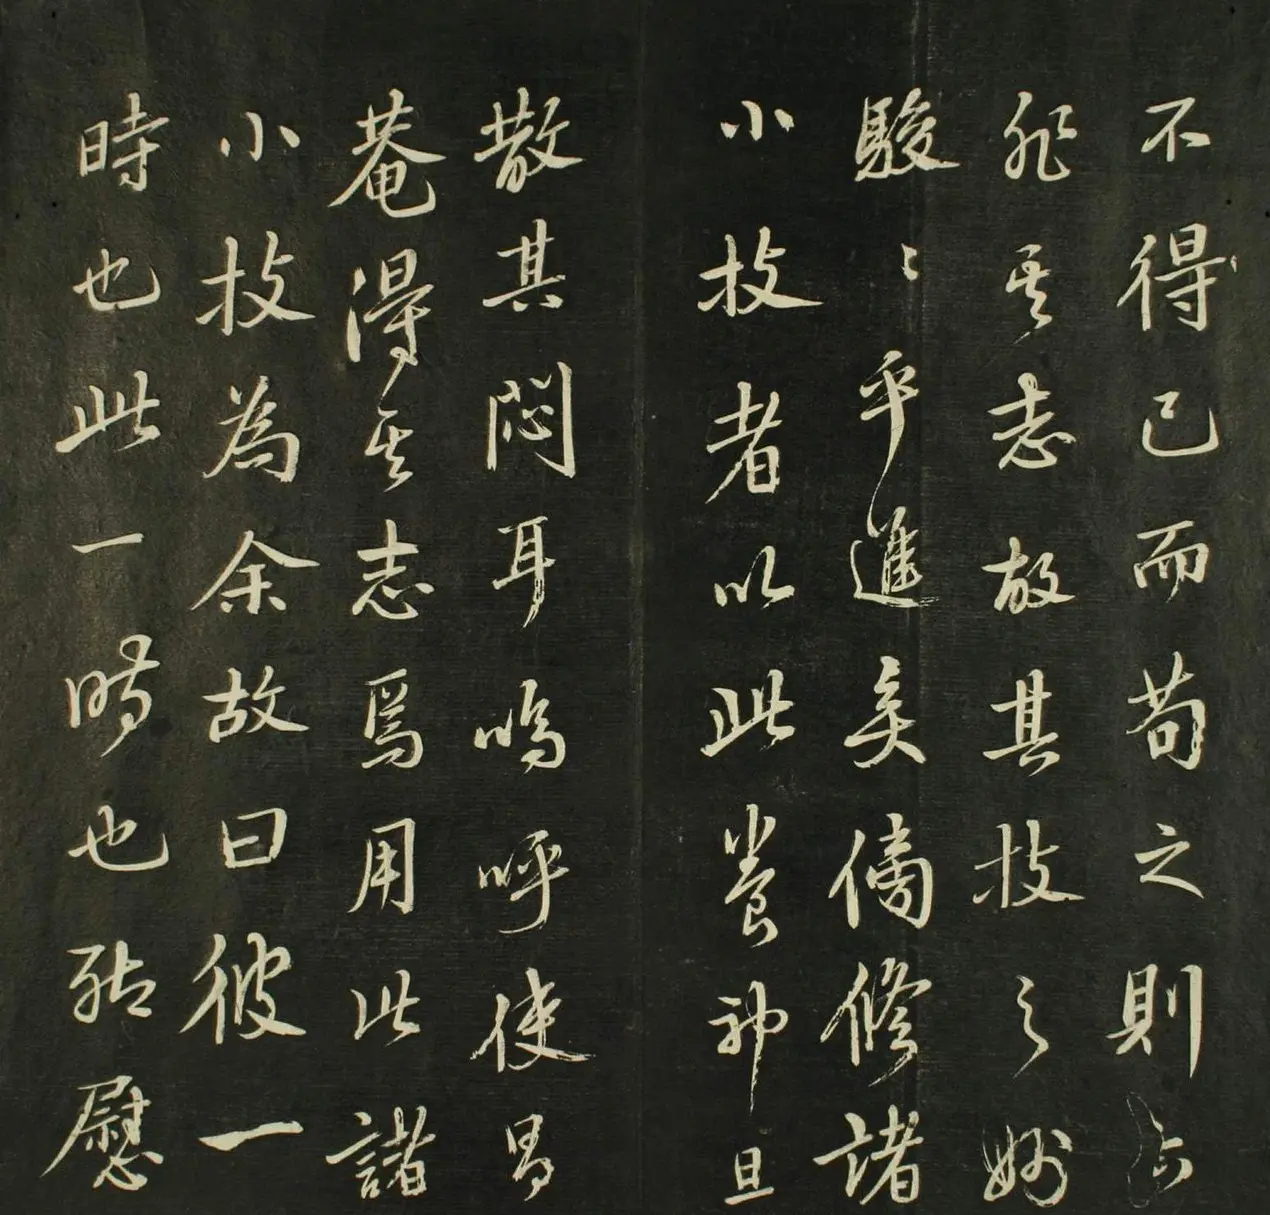 不得已而苟之則
非其志故其技之妙
駸〻乎進矣備修諸
小技者以此養神且
散其悶耳嗚呼使昌
菴得其志焉用此諸
小技為余故曰彼一
時也此一時也聊慰